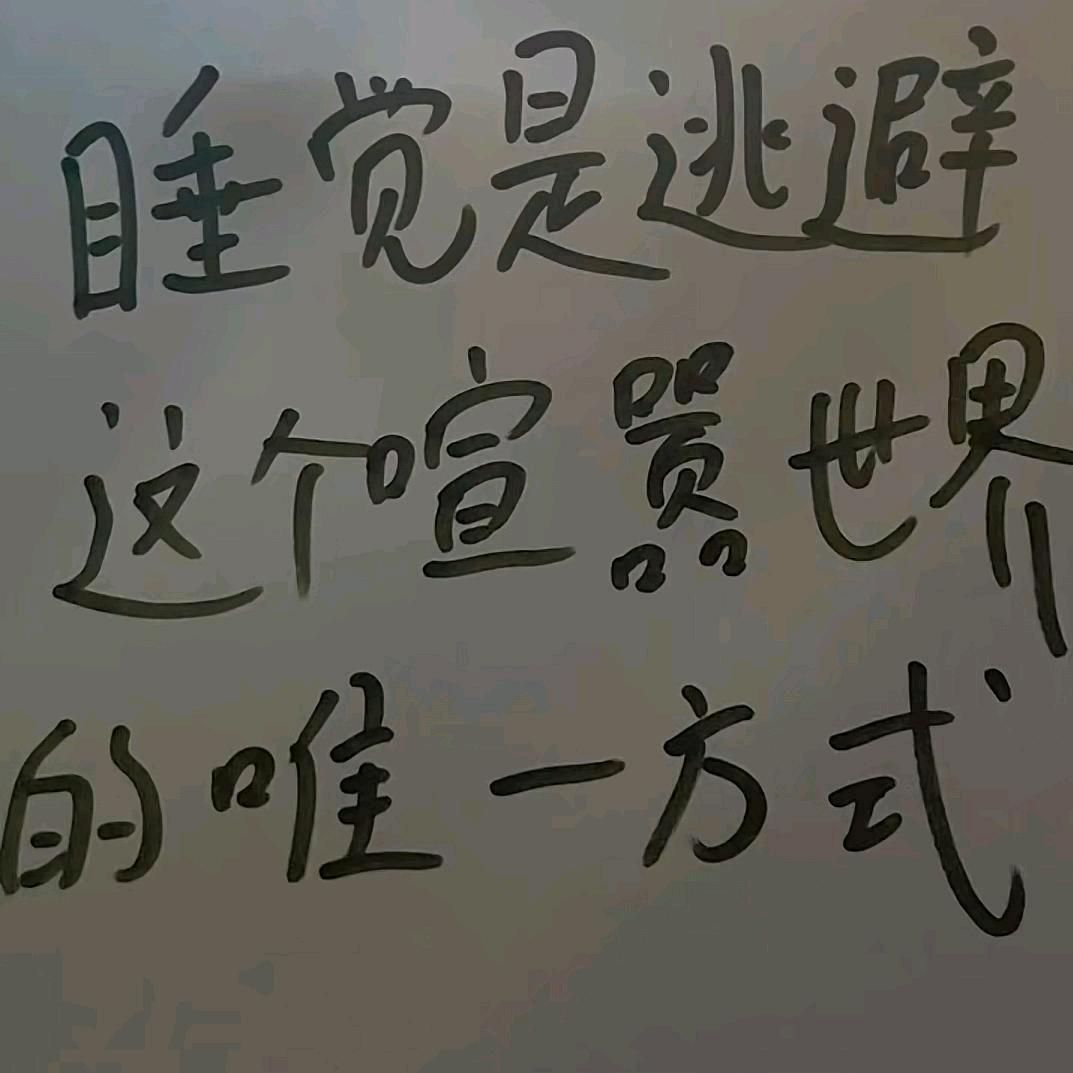 睡觉是逃避
这个喧嚣世界
的唯一方式